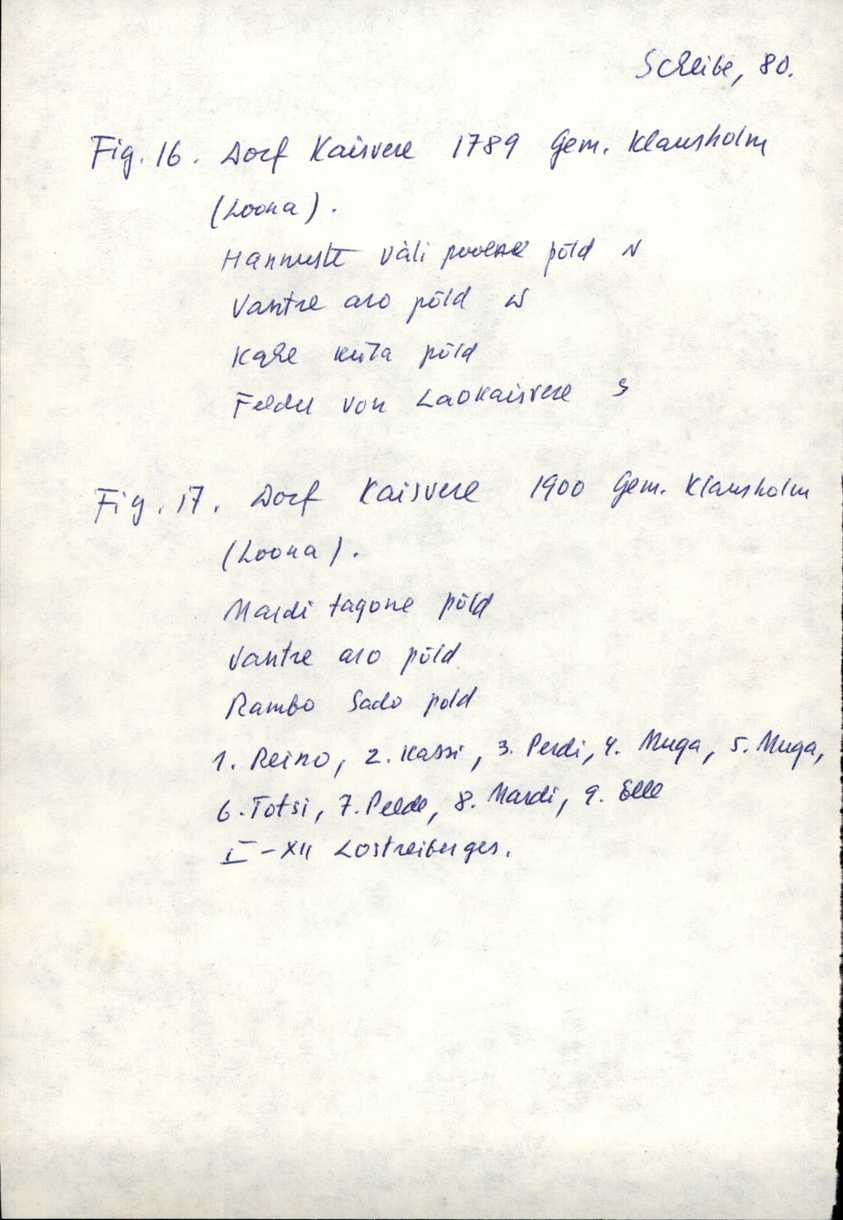 Scheibe, 80.
Fig. 16. Dorf Kaisvere 1789 Gem. Klausholm
(Loona).
Hannuste väli poolne põld N
Vantre aro põld W
Kahe põld
Felder von Laokaisvere S
Fig. 17. Dorf Kaisvere 1900 Gem. Klausholm
(Loona).
Mardi tagone põld
Vantre aro põld
Rambo Sado pold
1. Reino, 2. Kassi, 3. Perdi, 4. Muga, 5. Muga,
6. Totsi, 7. Peede, 8. Mardi, 9. Elle
I-XII Lostreiberges.